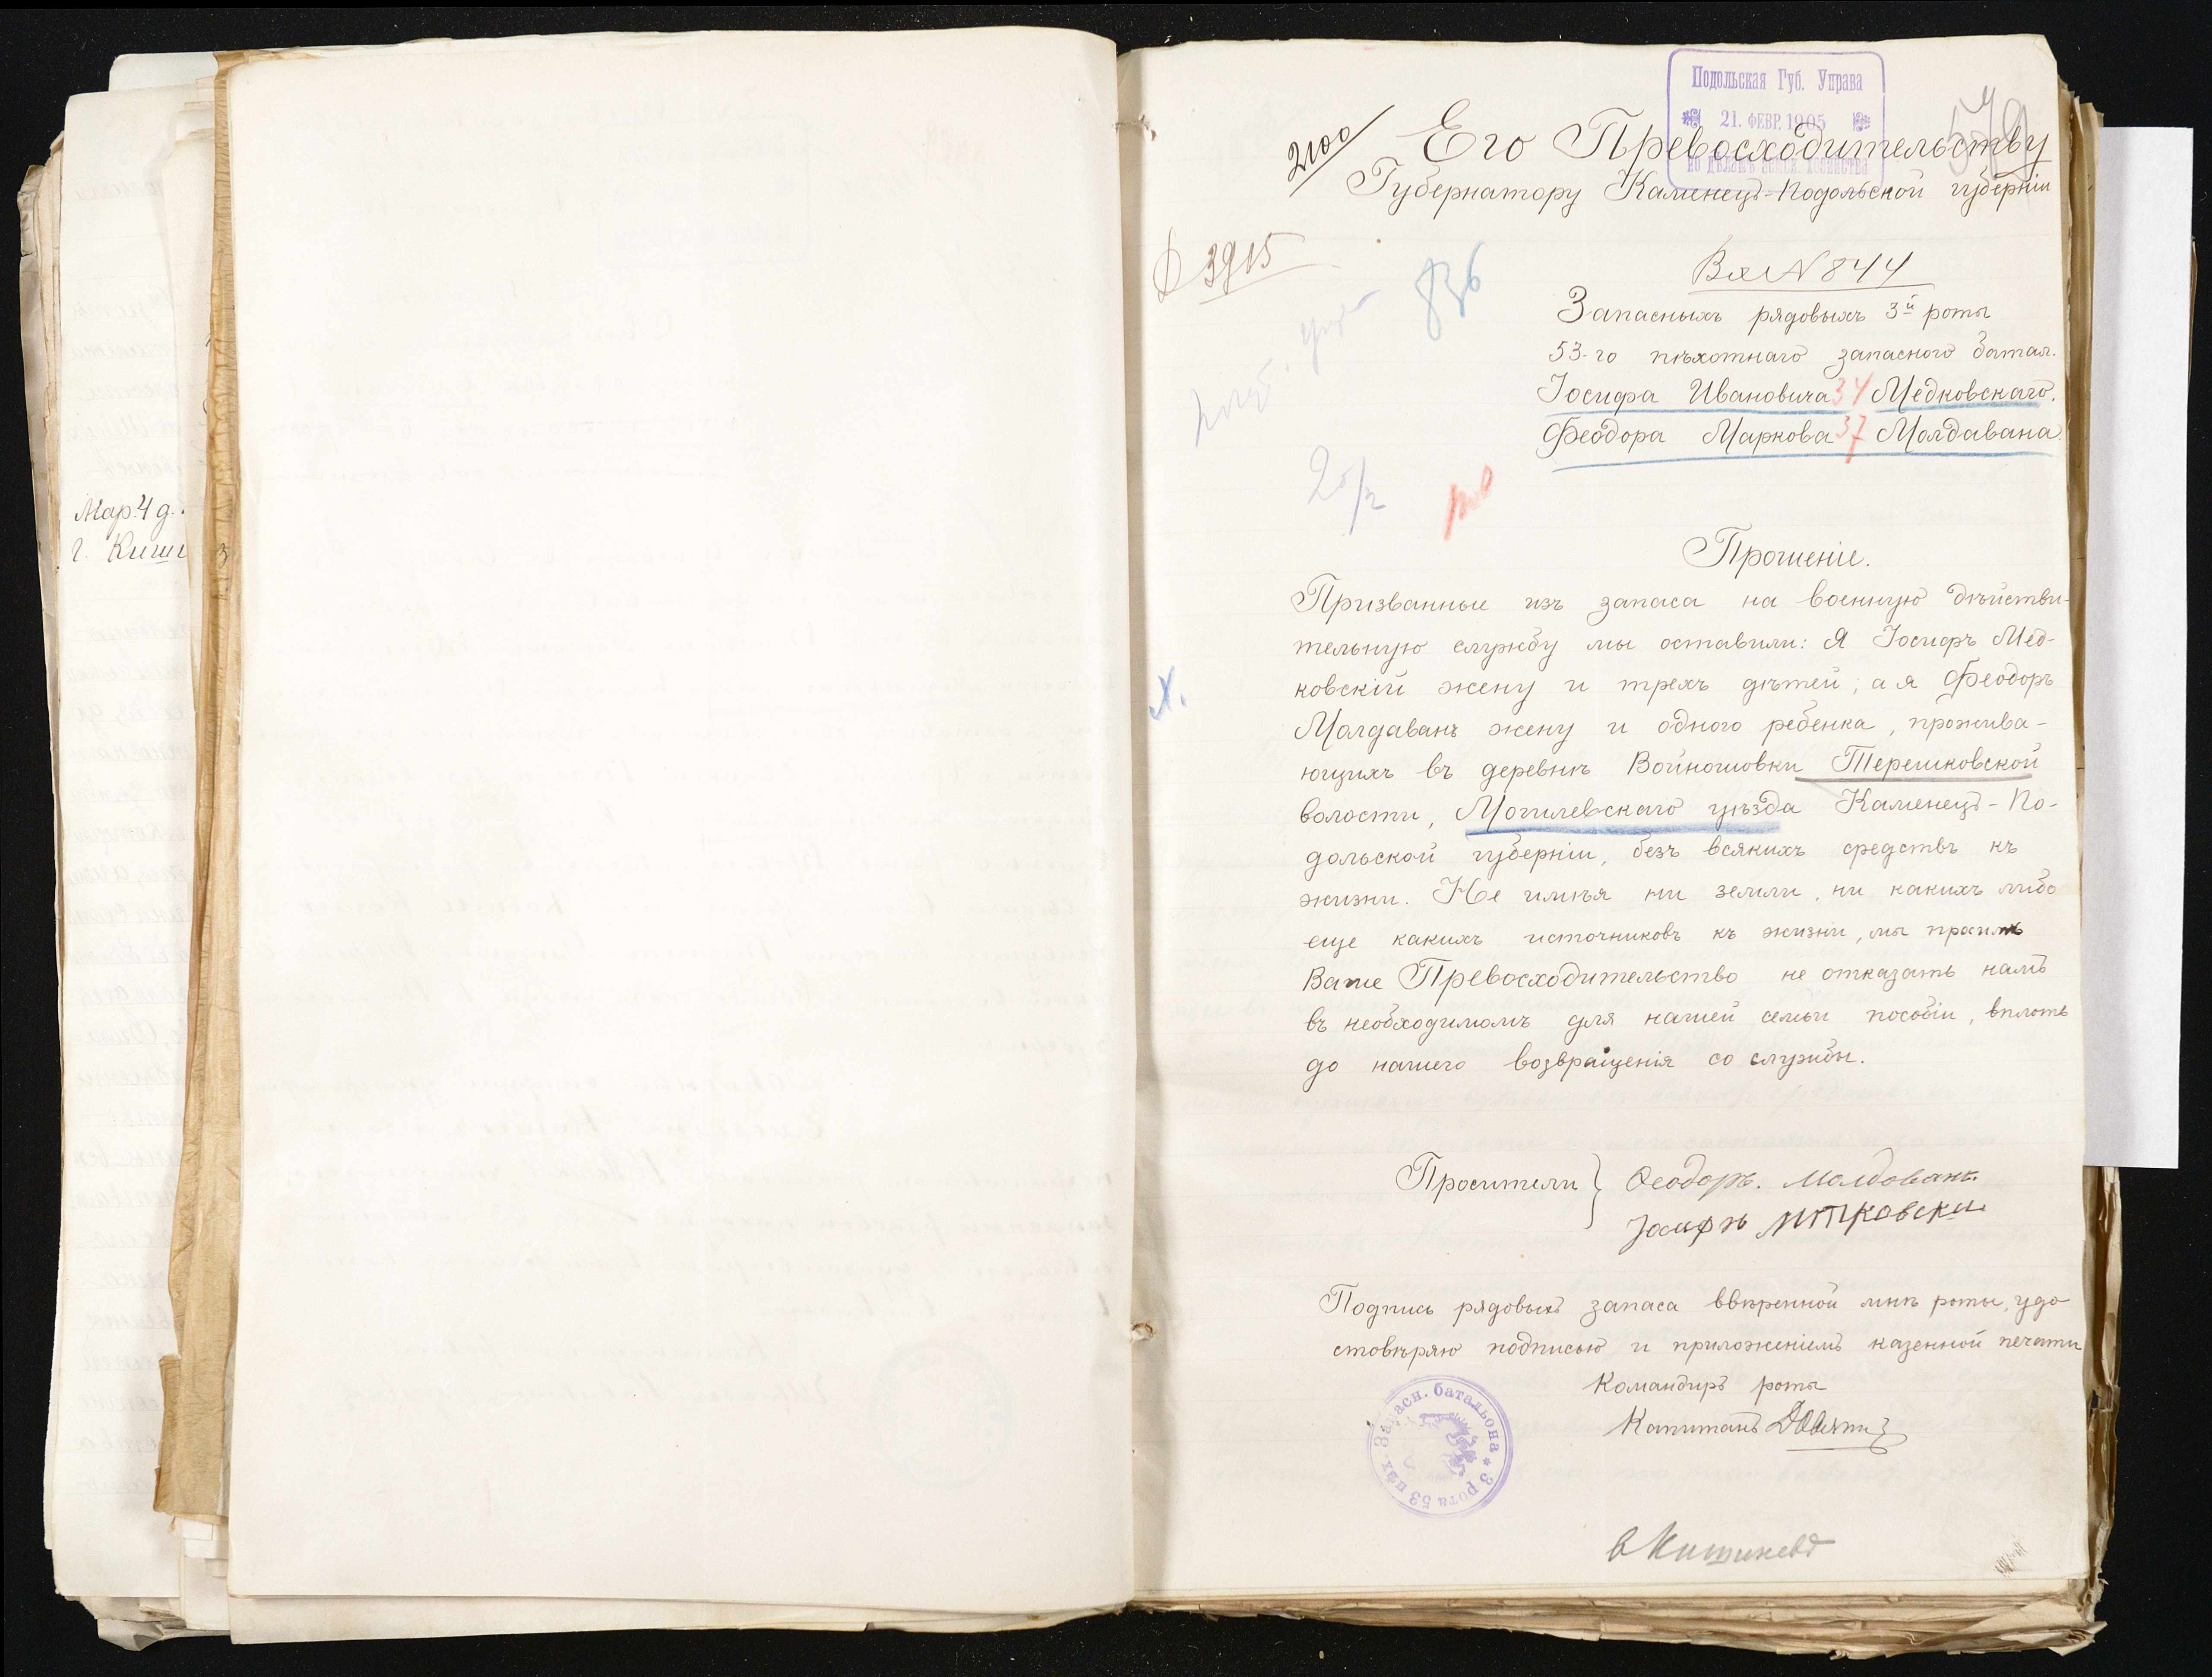 Мар. 4 д.
г. Киши
Подольская Губ. Управа
21. ФЕВР. 1905
579
2100
Его Превосходительству
Губернатору Каменецъ-Подольской губерніи
3915
836
Вх № 844
Запасныхъ рядовыхъ 3й роты
53-го пѣхотнаго запасного батал.
Іосифа Ивановича 34 Медковскаго.
Феодора Маркова 37 Молдавана.
Прошеніе.
Призванные изъ запаса на военную дѣйстви-
тельную службу мы оставили: Я Іосифъ Мед-
ковскій жену и трехъ дѣтей, а я Феодоръ
Молдаванъ жену и одного ребенка, прожива-
ющихъ въ деревнѣ Войношовки Терешковской
волости, Могилевскаго уѣзда Каменецъ-По-
дольской губерніи, безъ всякихъ средствъ къ
жизни. Не имѣя ни земли, ни какихъ либо
еще какихъ источниковъ къ жизни, мы просимъ
Ваше Превосходительство не отказать намъ
въ необходимомъ для нашей семьи пособіи, вплоть
до нашего возвращенія со службы.
Просители } Феодоръ. Молдованъ.
Іосифъ Митковски
Подпись рядовыхъ запаса ввѣренной мнѣ роты, удо
стовѣряю подписью и приложеніемъ казенной печати
Командиръ роты
Капитанъ
3 рота 53 пѣх. Запасн. баталіона *
в Кишиневѣ